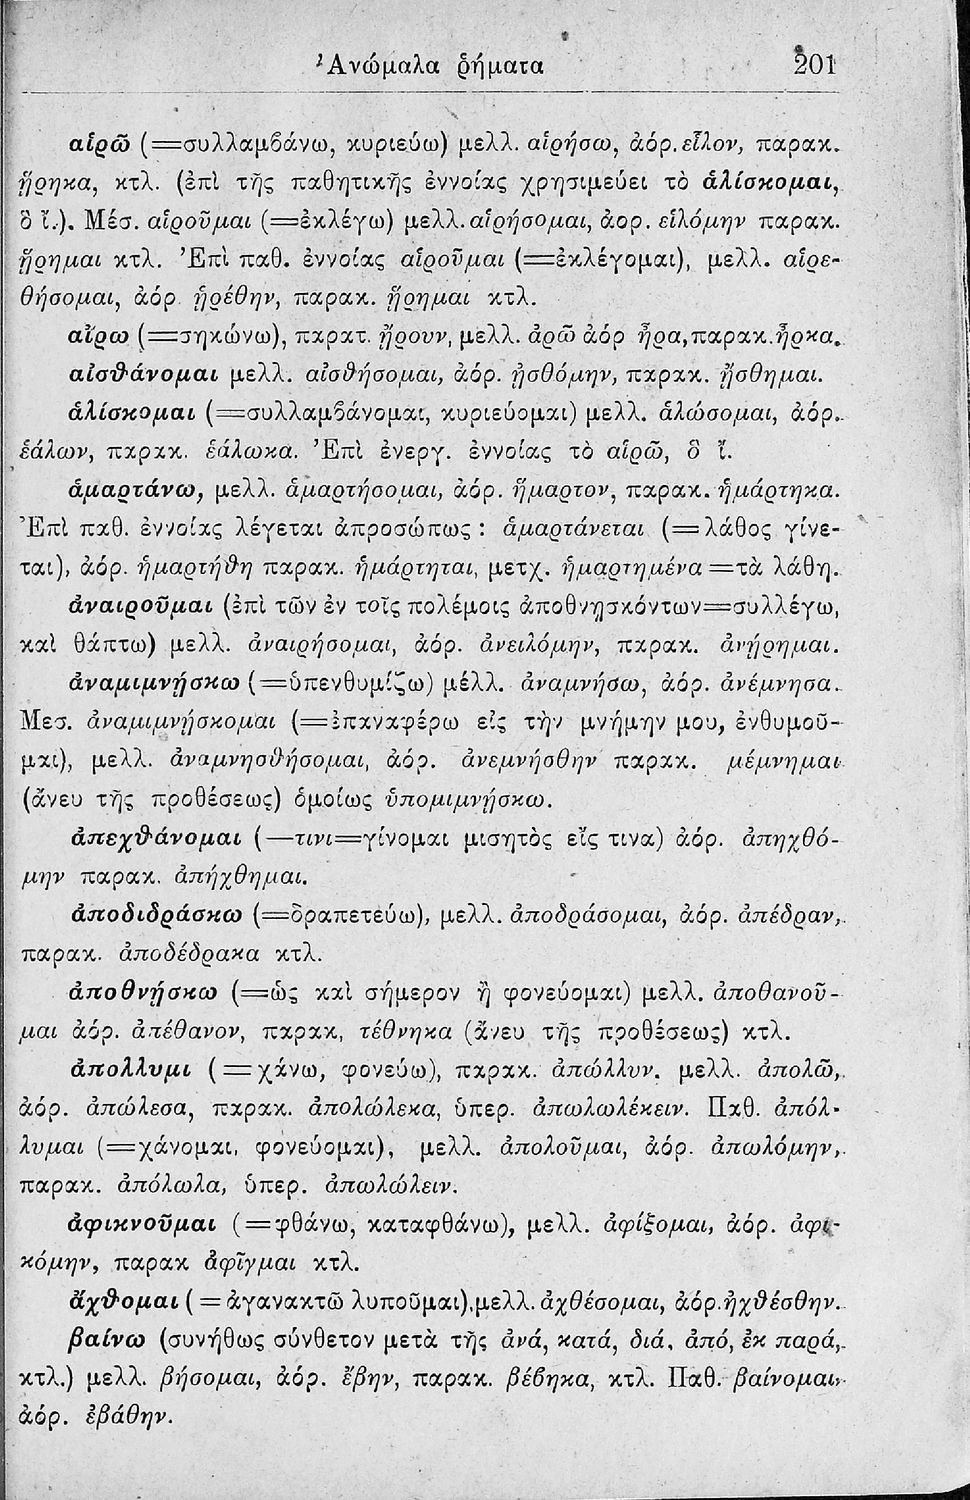 Ἀνώμαλα ῥήματα 201
αἱρῶ (=συλλαμβάνω, κυριεύω) μελλ. αἱρήσω, ἀόρ. εἷλον, παρακ.
ᾕρηκα, κτλ. (ἐπὶ τῆς παθητικῆς ἐννοίας χρησιμεύει τὸ ἁλίσκομαι,
ὃ ἴ.). Μέσ. αἱροῦμαι (=ἐκλέγω) μελλ. αἱρήσομαι, ἀορ. εἱλόμην παρακ.
ᾕρημαι κτλ. Ἐπὶ παθ. ἐννοίας αἱροῦμαι (=ἐκλέγομαι), μελλ. αἱρε-
θήσομαι, ἀόρ ᾑρέθην, παρακ. ᾕρημαι κτλ.
αἴρω (=σηκώνω), παρατ. ᾖρουν, μελλ. ἀρῶ ἀόρ ἦρα, παρακ. ἦρκα.
αἰσθάνομαι μελλ. αἰσθήσομαι, ἀόρ. ᾐσθόμην, παρακ. ᾔσθημαι.
ἁλίσκομαι (=συλλαμβάνομαι, κυριεύομαι) μελλ. ἁλώσομαι, ἀόρ.
ἑάλων, παρακ. ἑάλωκα. Ἐπὶ ἐνεργ. ἐννοίας τὸ αἱρῶ, ὃ ἴ.
ἁμαρτάνω, μελλ. ἁμαρτήσομαι, ἀόρ. ἥμαρτον, παρακ. ἡμάρτηκα.
Ἐπὶ παθ. ἐννοίας λέγεται ἀπροσώπως: ἁμαρτάνεται (=λάθος γίνε-
ται), ἀόρ. ἡμαρτήθη παρακ. ἡμάρτηται, μετχ. ἡμαρτημένα=τὰ λάθη.
ἀναιροῦμαι (ἐπὶ τῶν ἐν τοῖς πολέμοις ἀποθνῃσκόντων=συλλέγω,
καὶ θάπτω) μελλ. ἀναιρήσομαι, ἀόρ. ἀνειλόμην, παρακ. ἀνῄρημαι.
ἀναμιμνῄσκω (=ὑπενθυμίζω) μέλλ. ἀναμνήσω, ἀόρ. ἀνέμνησα.
Μεσ. ἀναμιμνῄσκομαι (=ἐπαναφέρω εἰς τὴν μνήμην μου, ἐνθυμοῦ-
μαι), μελλ. ἀναμνησθήσομαι, ἀόρ. ἀνεμνήσθην παρακ. μέμνημαι
(ἄνευ τῆς προθέσεως) ὁμοίως ὑπομιμνῄσκω.
ἀπεχθάνομαι (—τινι=γίνομαι μισητὸς εἴς τινα) ἀόρ. ἀπηχθό-
μην παρακ. ἀπήχθημαι.
ἀποδιδράσκω (=δραπετεύω), μελλ. ἀποδράσομαι, ἀόρ. ἀπέδραν,
παρακ. ἀποδέδρακα κτλ.
ἀποθνῄσκω (=ὡς καὶ σήμερον ἢ φονεύομαι) μελλ. ἀποθανοῦ-
μαι ἀόρ. ἀπέθανον, παρακ, τέθνηκα (ἄνευ τῆς προθέσεως) κτλ.
ἀπολλυμι (=χάνω, φονεύω), παρακ. ἀπώλλυν. μελλ. ἀπολῶ,
ἀόρ. ἀπώλεσα, παρακ. ἀπολώλεκα, ὑπερ. ἀπωλωλέκειν. Παθ. ἀπόλ-
λυμαι (=χάνομαι, φονεύομαι), μελλ. ἀπολοῦμαι, ἀόρ. ἀπωλόμην,
παρακ. ἀπόλωλα, ὑπερ. ἀπωλώλειν.
ἀφικνοῦμαι (=φθάνω, καταφθάνω), μελλ. ἀφίξομαι, ἀόρ. ἀφι-
κόμην, παρακ ἀφῖγμαι κτλ.
ἄχθομαι (=ἀγανακτῶ λυποῦμαι), μελλ. ἀχθέσομαι, ἀόρ. ἠχθέσθην.
βαίνω (συνήθως σύνθετον μετὰ τῆς ἀνά, κατά, διά, ἀπό, ἐκ παρά,
κτλ.) μελλ. βήσομαι, ἀόρ. ἔβην, παρακ. βέβηκα, κτλ. Παθ. βαίνομαι,
ἀόρ. ἐβάθην.